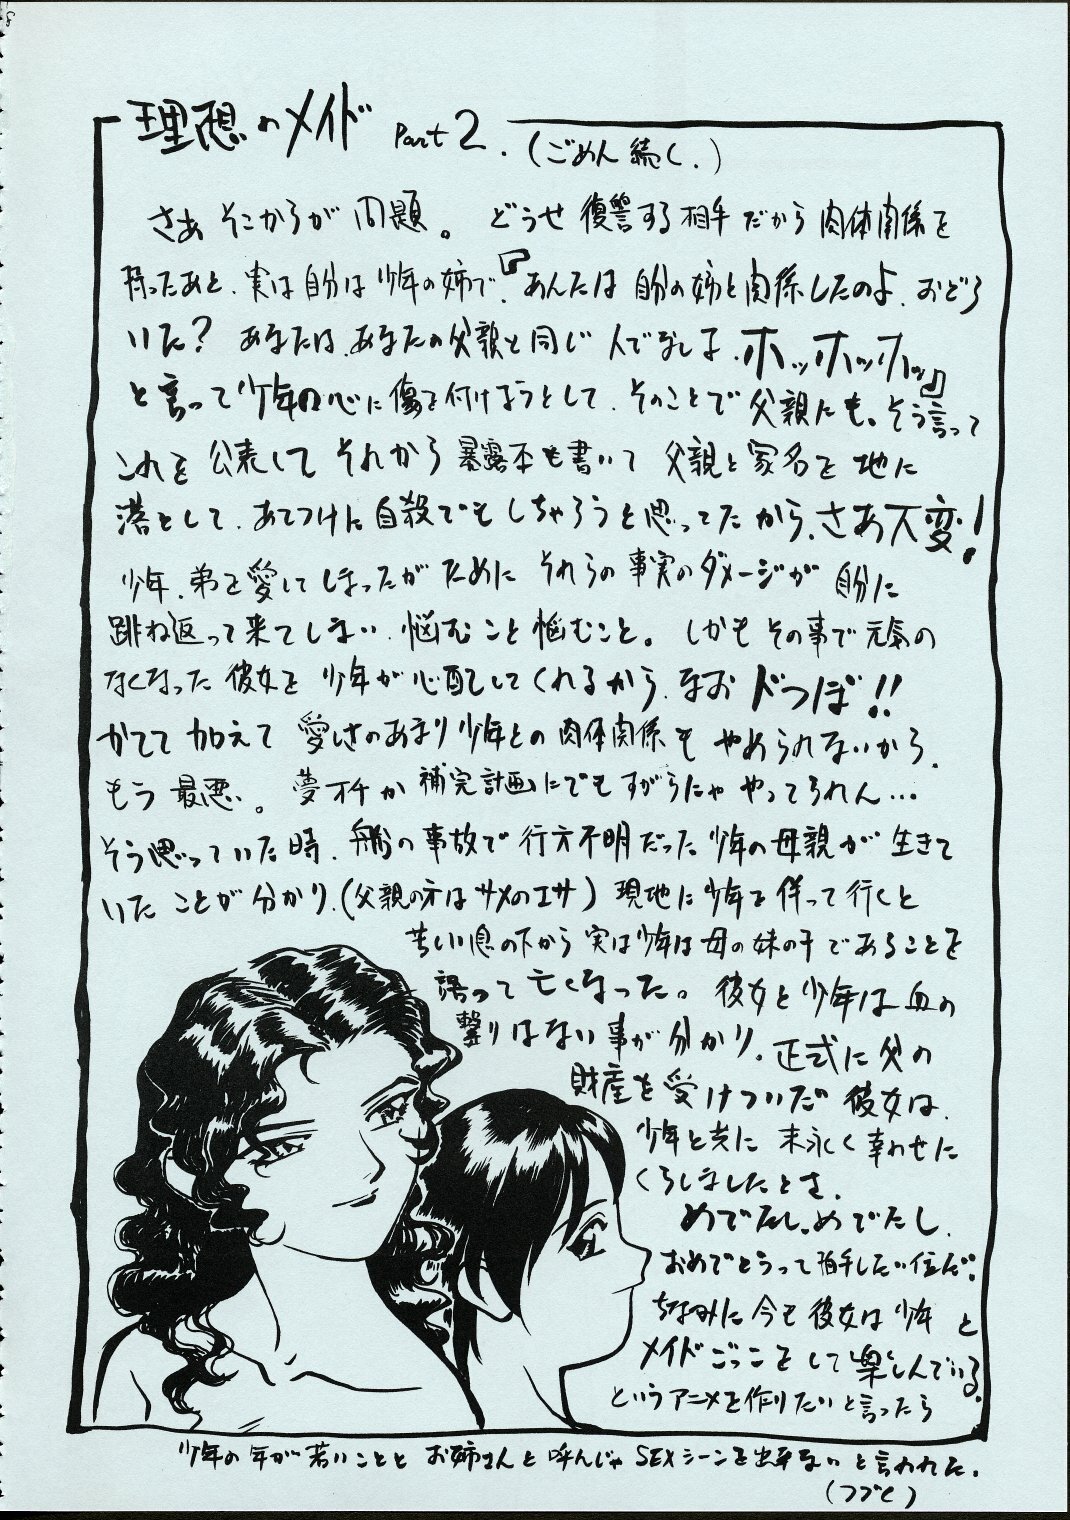 理想のメイド Part 2. (ごめん続く.)
さあ そこからが 問題。 どうせ 復讐する相手だから 肉体関係を
持ったあと、実は自分は少年の姉で、『あんたは 自分の姉と関係したのよ、おどろ
いた? あなたは、あなたの父親と同じ 人でなしよ、ホッホッホッ』
と言って少年の心に傷を付けようとして、そのことで父親にも。そう言って
これを 公表して それから 暴露本も書いて 父親と家名を 地に
落として、あてつけに自殺でもしちゃろうと思ってたから、さあ大変!
少年、弟を愛してしまったがために それらの事実のダメージが 自分に
跳ね返って来てしまい、悩むこと悩むこと。 しかも その事で元気の
なくなった 彼女を 少年が心配してくれるから、なお ドつぼ!!
かてて加えて 愛しさのあまり少年との肉体関係も やめられないから、
もう 最悪。 夢オチか 補完計画にでもすがらにゃ やってられん…
そう思っていた時、船の事故で行方不明だった少年の母親が 生きて
いた ことが分かり、(父親の方はサメのエサ) 現地に少年を伴って行くと
苦しい息の下から 実は少年は母の妹の子であることを
語って亡くなった。 彼女と少年は血の
繋りはない事が分かり、正式に父の
財産を受けついだ 彼女は、
少年と共に 末永く幸わせに
くらしましたとさ、
めでたし、めでたし、
おめでとうって拍手したい位だ。
ちなみに今も彼女は少年と
メイドごっこをして楽しんでいる。
というアニメを作りたいと言ったら
少年の年が若いことと お姉さんと呼んじゃ SEXシーンを出来ないと言われた。
(つづく)